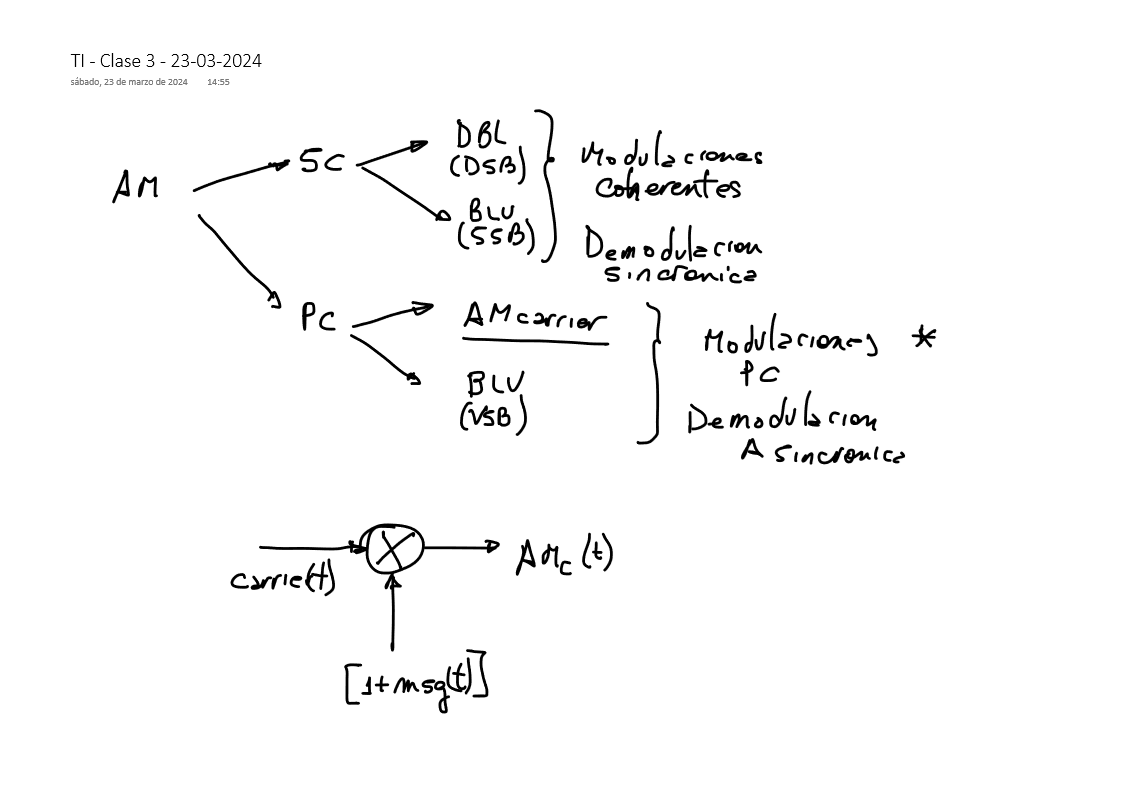 TI - Clase 3 - 23-03-2024
sábado, 23 de marzo de 2024 14:55
AM
SC
DBL
(DSB)
BLU
(SSB)
Modulaciones
Coherentes
Demodulacion
sincronica
PC
AM carrier
BLV
(VSB)
Modulaciones *
PC
Demodulacion
A sincronica
carrie(t)
X
AMc (t)
[1+msg(t)]